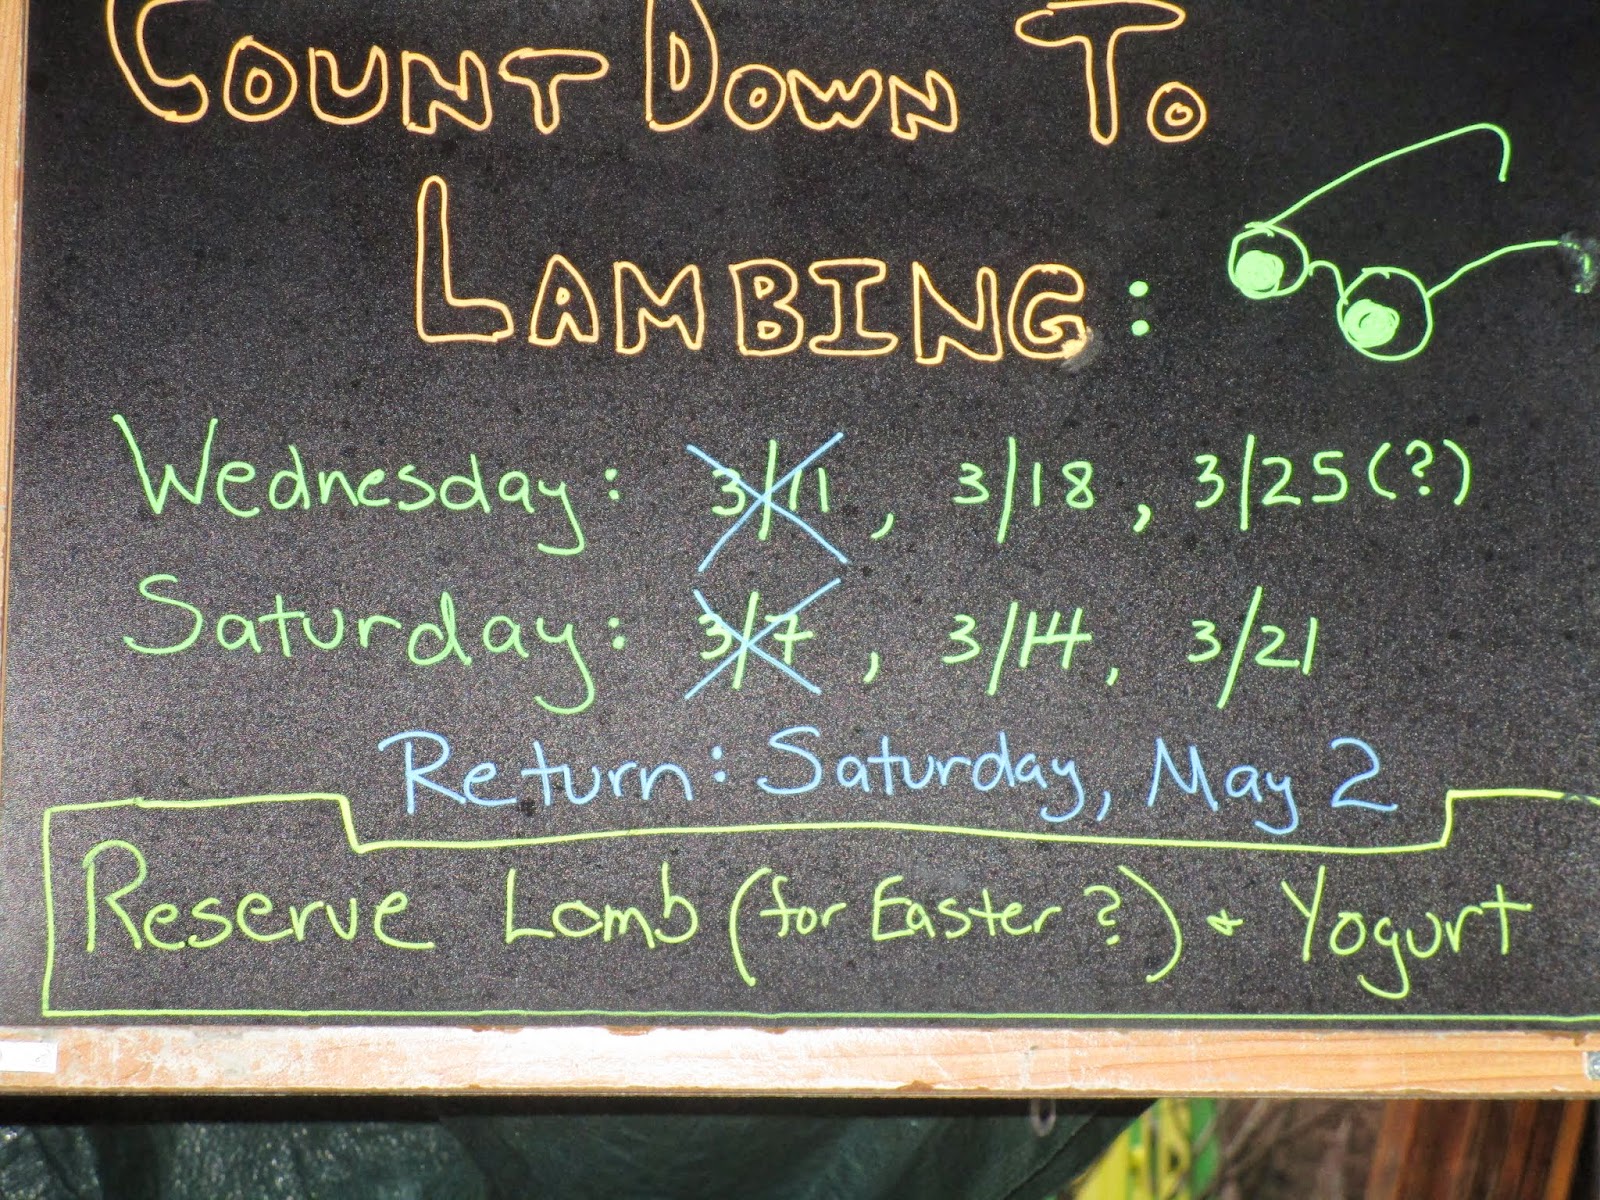 COUNT DOWN TO
LAMBING:
Wednesday: 3/11, 3/18, 3/25(?)
Saturday: 3/7, 3/14, 3/21
Return: Saturday, May 2
Reserve Lamb (for Easter?) + Yogurt